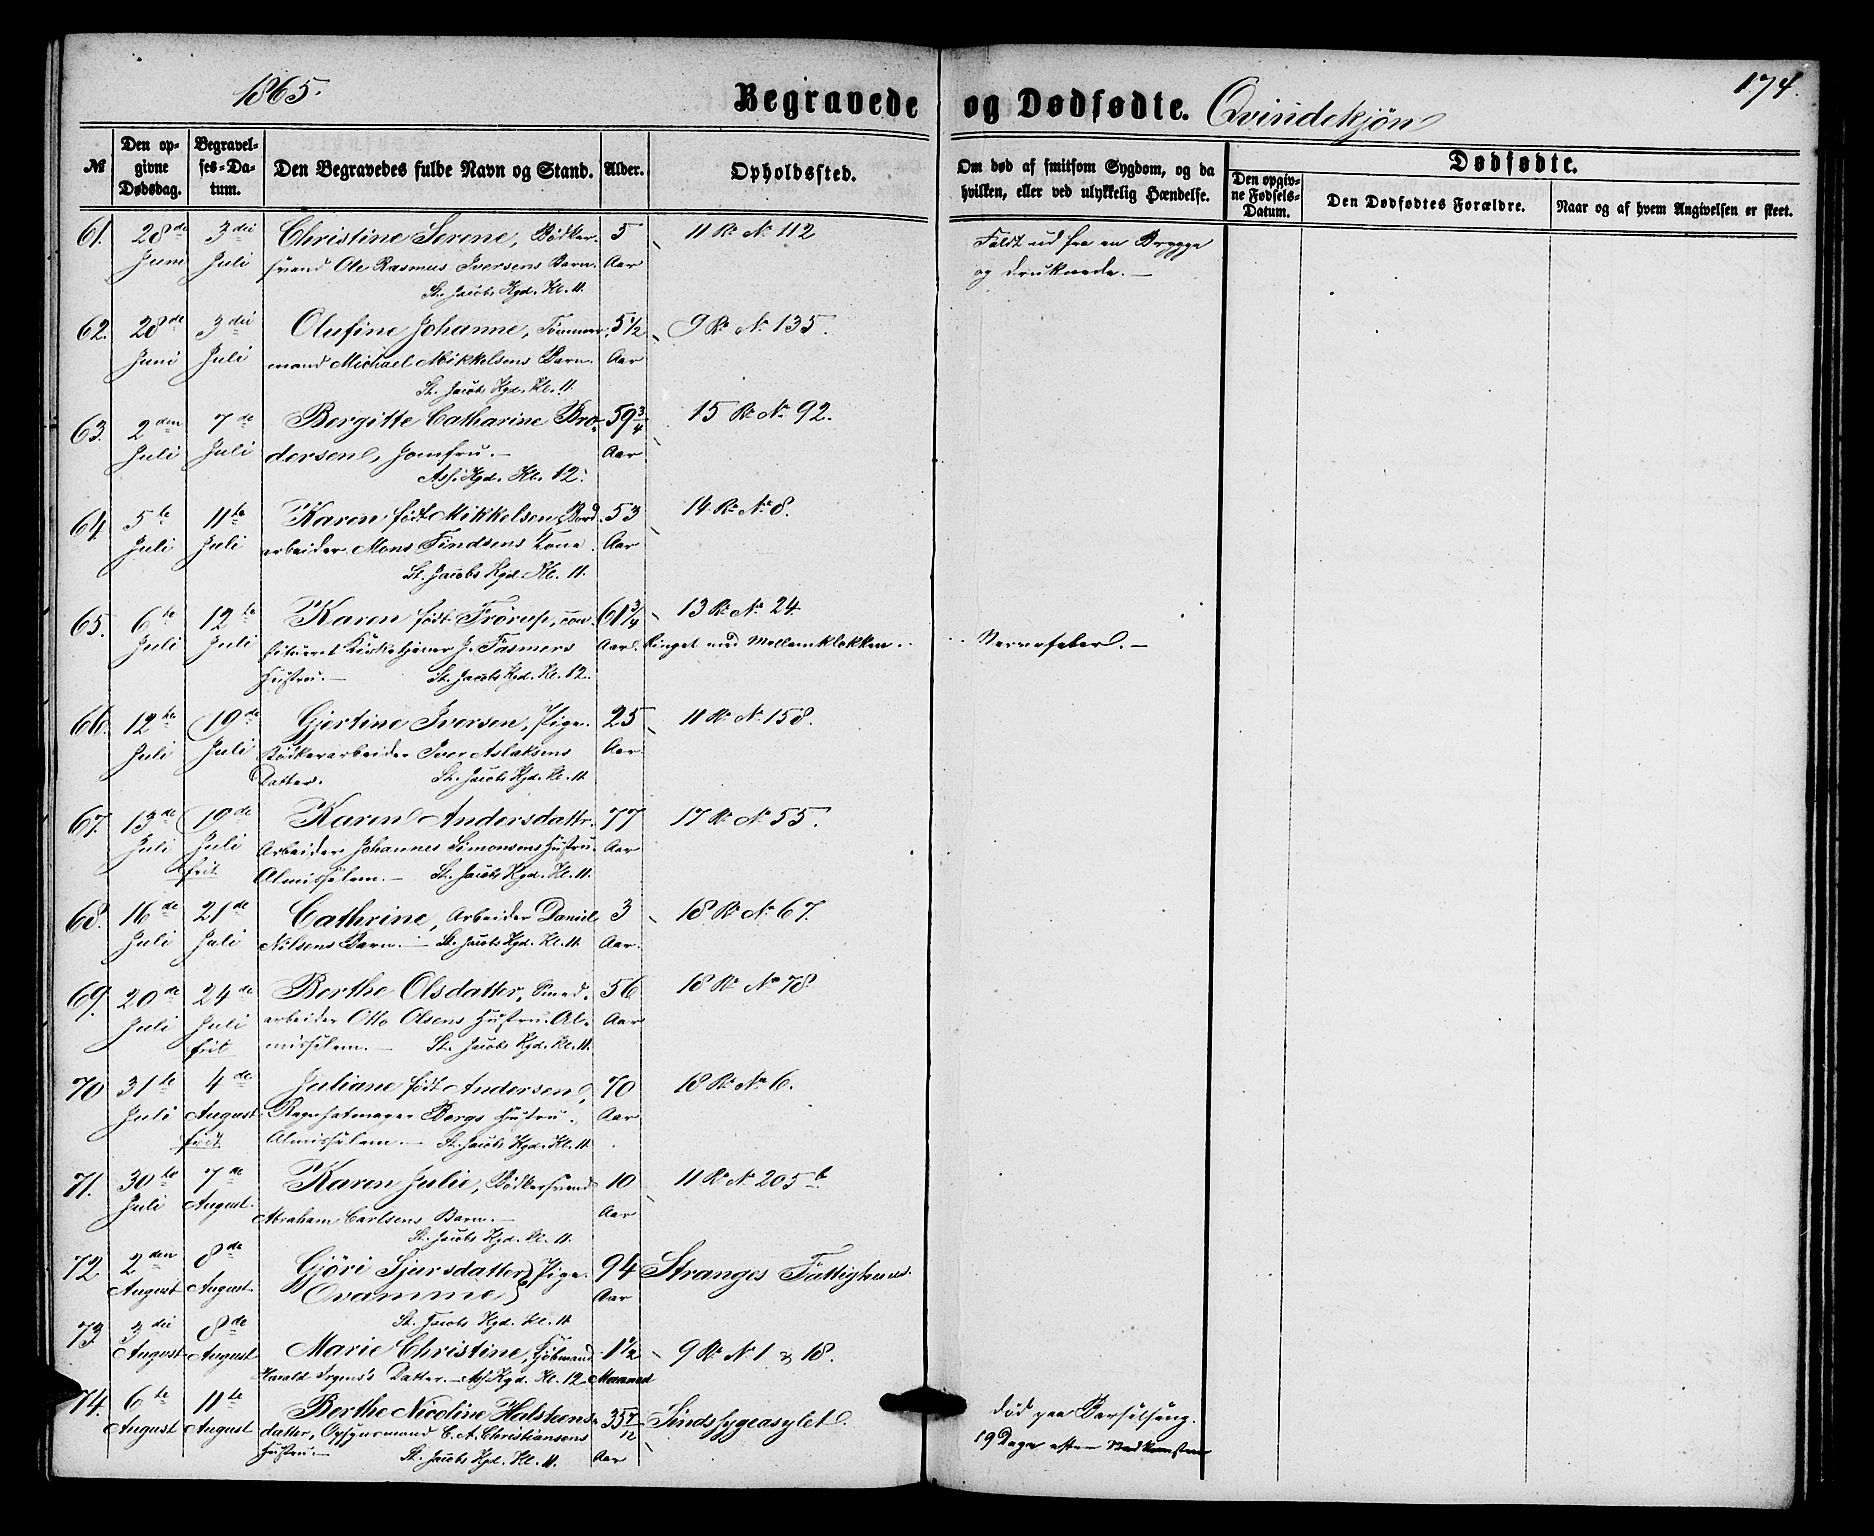 1865.
Begravede og Dødfødte. Qvindekjøn
174.
№
Den opgivne Dødsdag.
Begravelses-Datum.
Den Begravedes fulde Navn og Stand.
Alder.
Opholdssted.
Om død af smitsom Sygdom, og da hvilken, eller ved ulykkelig Hændelse.
Dødfødte.
Den opgivne Fødsels-Datum.
Den Dødfødtes Forældre.
Naar og af hvem Angivelsen er skeet.
61. 28de 3die Christine Serene, Bødker- 5 11 R. № 112 Faldt ud fra en Brygge
Juni Juli svend Ole Rasmus Iversens Barn. Aar og druknede. —
St. Jacobs Kgd. Kl. 11.
62. 28de 3die Olufine Johanne, Tømmer- 5 1/2 9 R. № 135.
Juni Juli mand Michael Mikkelsens Barn. Aar
St. Jacobs Kgd. Kl. 11.
63. 2den 7de Bergitte Catharine Bro- 59 3/4 15 R. № 92.
Juli Juli dersen, Jomfru. — Aar
Ass. Kgd. Kl. 12.
64. 5te 11te Karen født Mikkelsen, Bord- 53 14 R. № 8.
Juli Juli arbeider Mons Findsens Kone. Aar
St. Jacobs Kgd. Kl. 11.
65. 6te 12te Karen født Frørup, con- 61 3/4 13 R. № 24
Juli Juli stitueret Kirketjener J. Fasmers Aar. Ringet med Mellemklokken. Nervefeber. —
Hustru. — St. Jacobs Kgd. Kl. 12.
66. 12te 19de Gjertine Iversen, Pige. 25 11 R. № 158.
Juli Juli Bødkerarbeider Iver Aslaksens Aar
Datter. St. Jacobs Kgd. Kl. 11
67. 13de 19de Karen Andersdatter. 77 17 R. № 55.
Juli Juli Arbeider Johannes Simonsens Hustru. Aar
frit. Almisselem. — St. Jacobs Kgd. Kl. 11.
68. 16de 21de Cathrine, Arbeider Daniel 3 18 R. № 67.
Juli Juli Nilsens Barn. — St. Jacobs Kgd. Kl. 11 Aar.
69. 20de 24de Berthe Olsdatter, Smed- 56 18 R. № 78.
Juli Juli arbeider Otto Olsens Hustru. Al- Aar
frit misselem. — St. Jacobs Kgd. Kl. 11.
70 31te 4de Juliane født Andersen, 70 18 R. № 6.
Juli August Bergs Hustru. Aar
frit. Almisselem. — St. Jacobs Kgd. Kl. 11.
71. 30te 7de Karen Julie, Bødkersvend 10 11 R. № 205 b.
Juli August. Abraham Carlsens Barn. — Aar
St. Jacobs Kgd. Kl. 11.
72 2den 8de Gjøri Sjursdatter Pige. 94 Stranges Fattighuus.
August August. Qvamme Aar
St. Jacobs Kgd. Kl. 11
73. 3die 8de Marie Christine, Kjøbmand 1 1/2 9 R. № 1 & 18.
August August Harald Irgens's Datter. — Ass. Kgd. Kl. 12. Maaned
74. 6te 11te Berthe Nicoline Halsteens- 35 7/12 Sindssygeasylet. Død paa Barselseng.
August August datter, Opsynsmand C. A. Christiansens 19 Dage efter Nedkomsten
Hustru. — St. Jacobs Kgd. Kl. 11. Aar